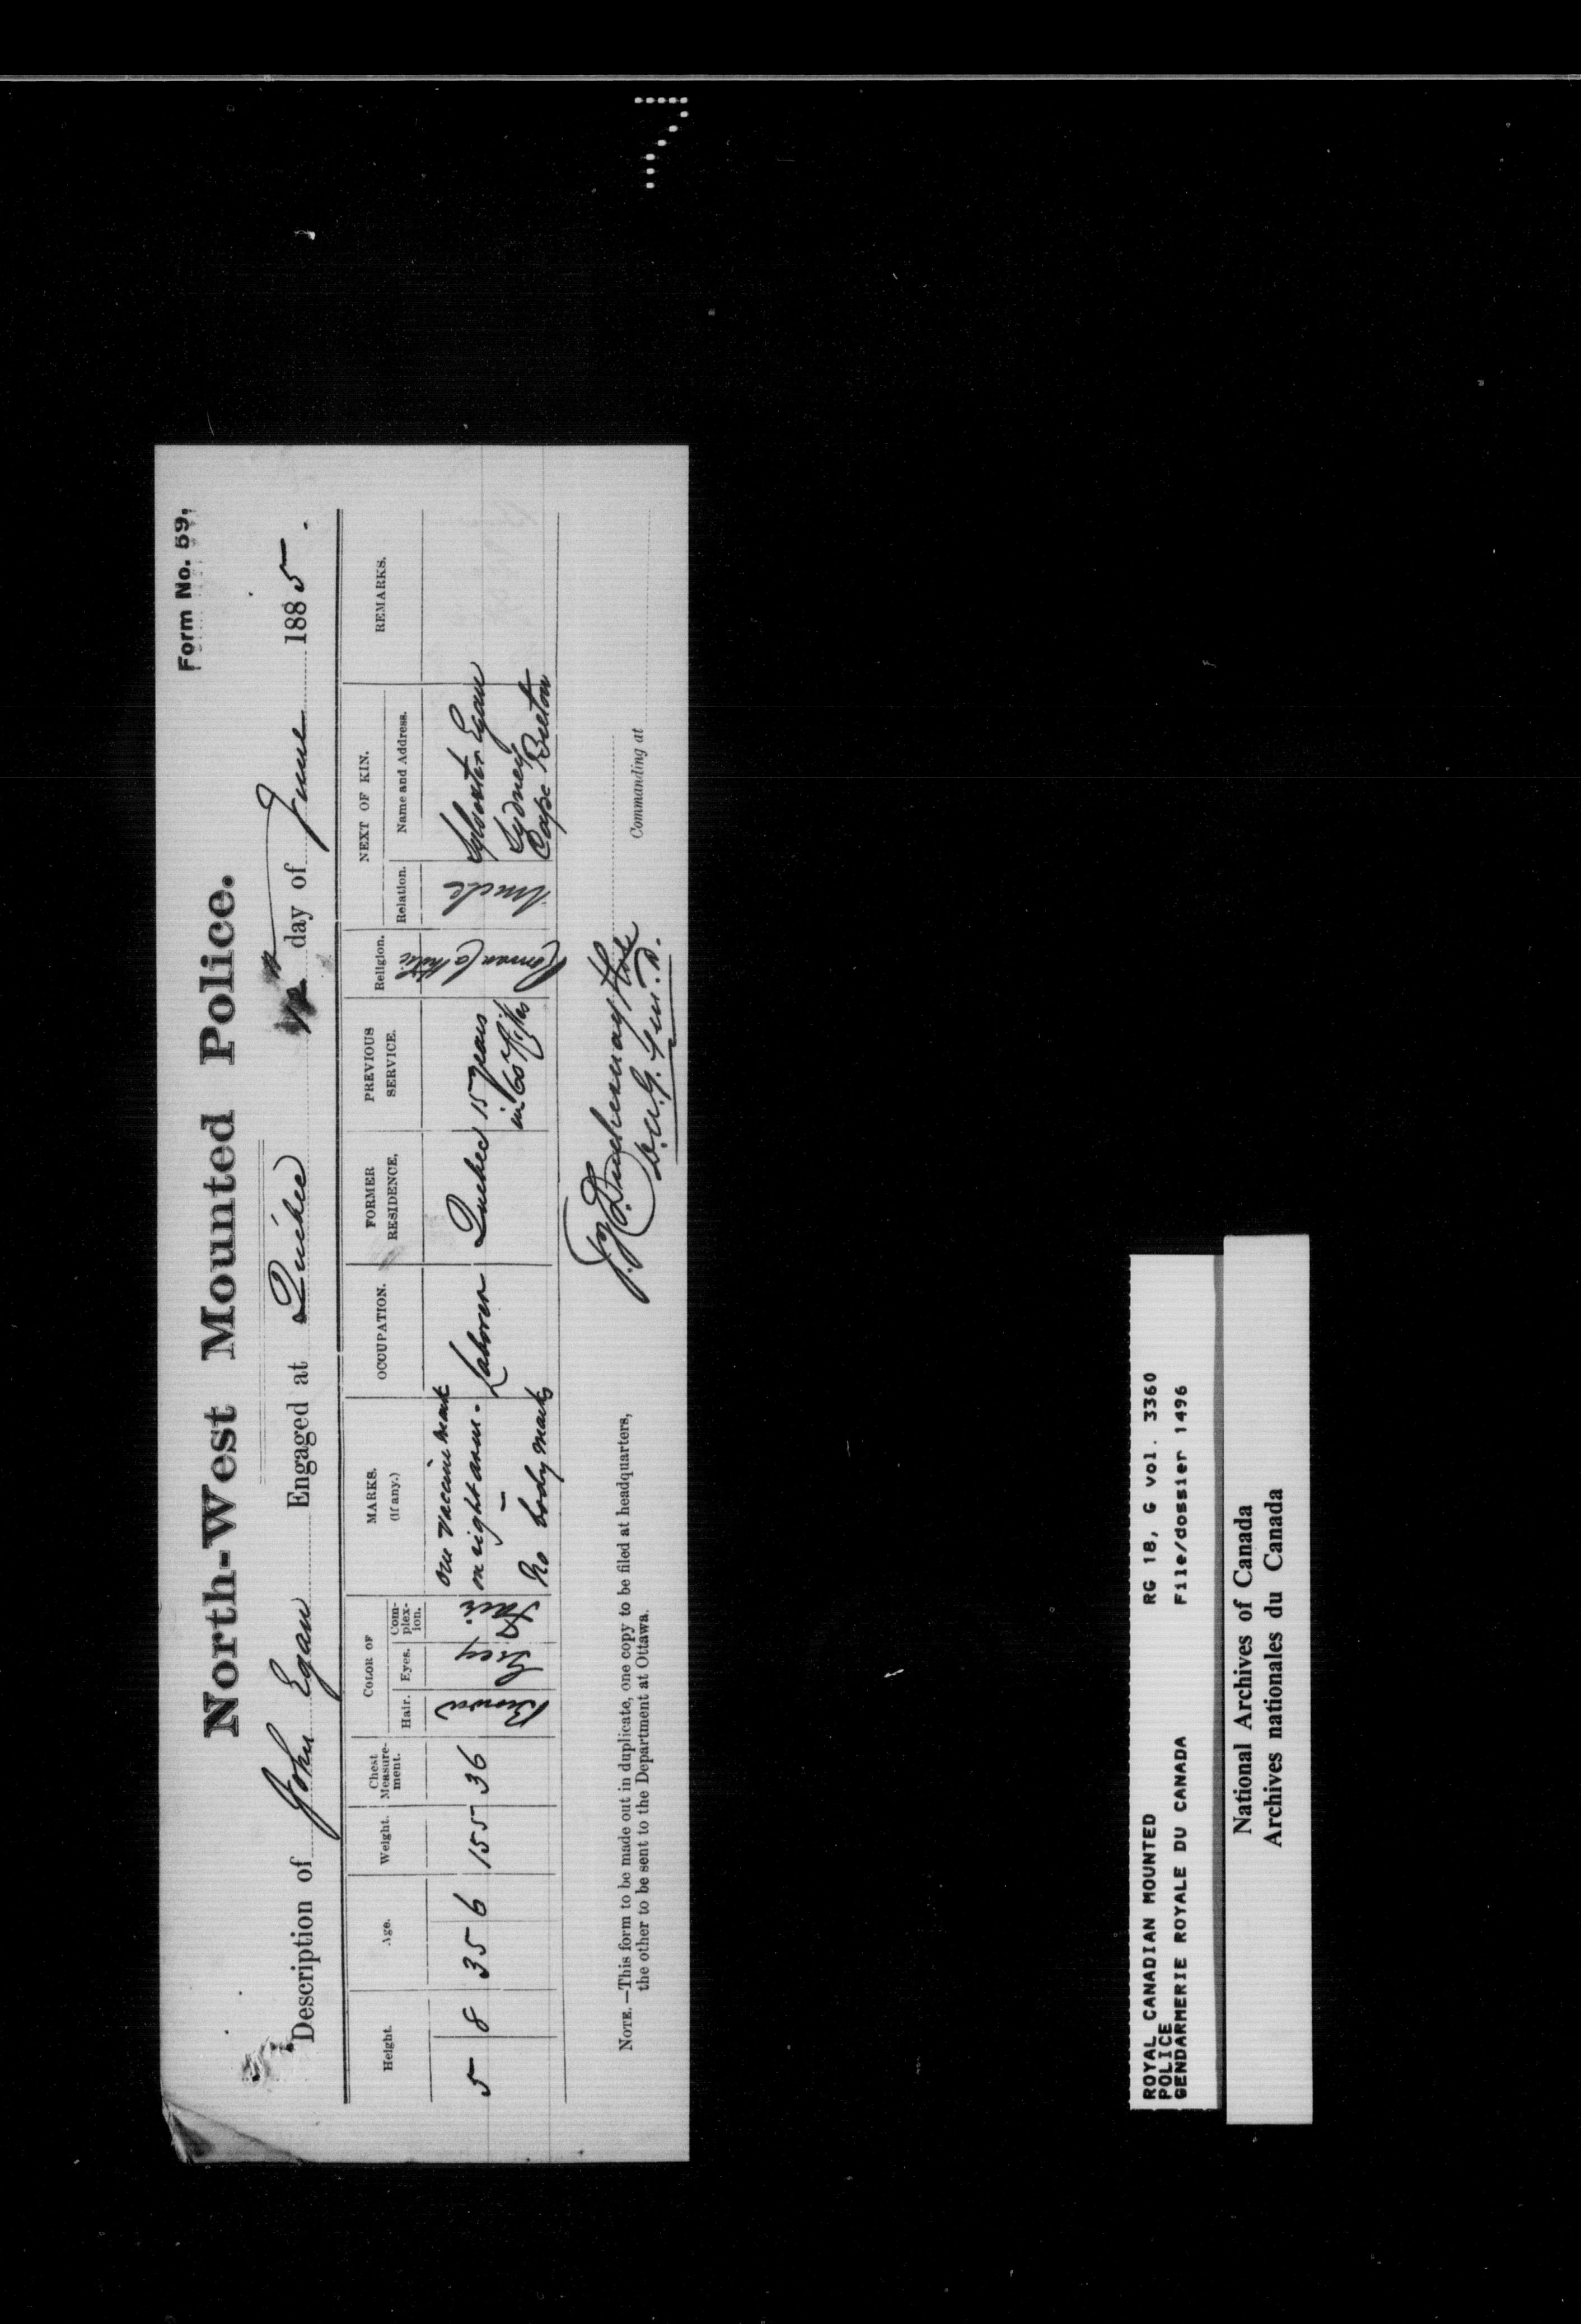 Form No. 59.
North-West Mounted Police.
Description of John Egan Engaged at Quebec day of June 1885.
Height.
Age.
Weight.
Chest Measure-ment.
COLOR OF
Hair.
Eyes.
Com-plex-ion.
MARKS.
(If any.)
OCCUPATION.
FORMER RESIDENCE.
PREVIOUS SERVICE.
Religion.
NEXT OF KIN.
Relation.
Name and Address.
REMARKS.
5 8
35 6
155
36
Brown
Grey
Fair
One vaccine mark
on right arm. -
No body marks
Laborer
Quebec
15 years
in 60 Rifles
Roman Catholic
Uncle
Sylvester Egan
Sydney
Cape Breton
Duchesnay
D.A.G.
Commanding at
NOTE.—This form to be made out in duplicate, one copy to be filed at headquarters,
the other to be sent to the Department at Ottawa.
ROYAL CANADIAN MOUNTED
POLICE
GENDARMERIE ROYALE DU CANADA
RG 18, G vol. 3360
File/dossier 1496
National Archives of Canada
Archives nationales du Canada